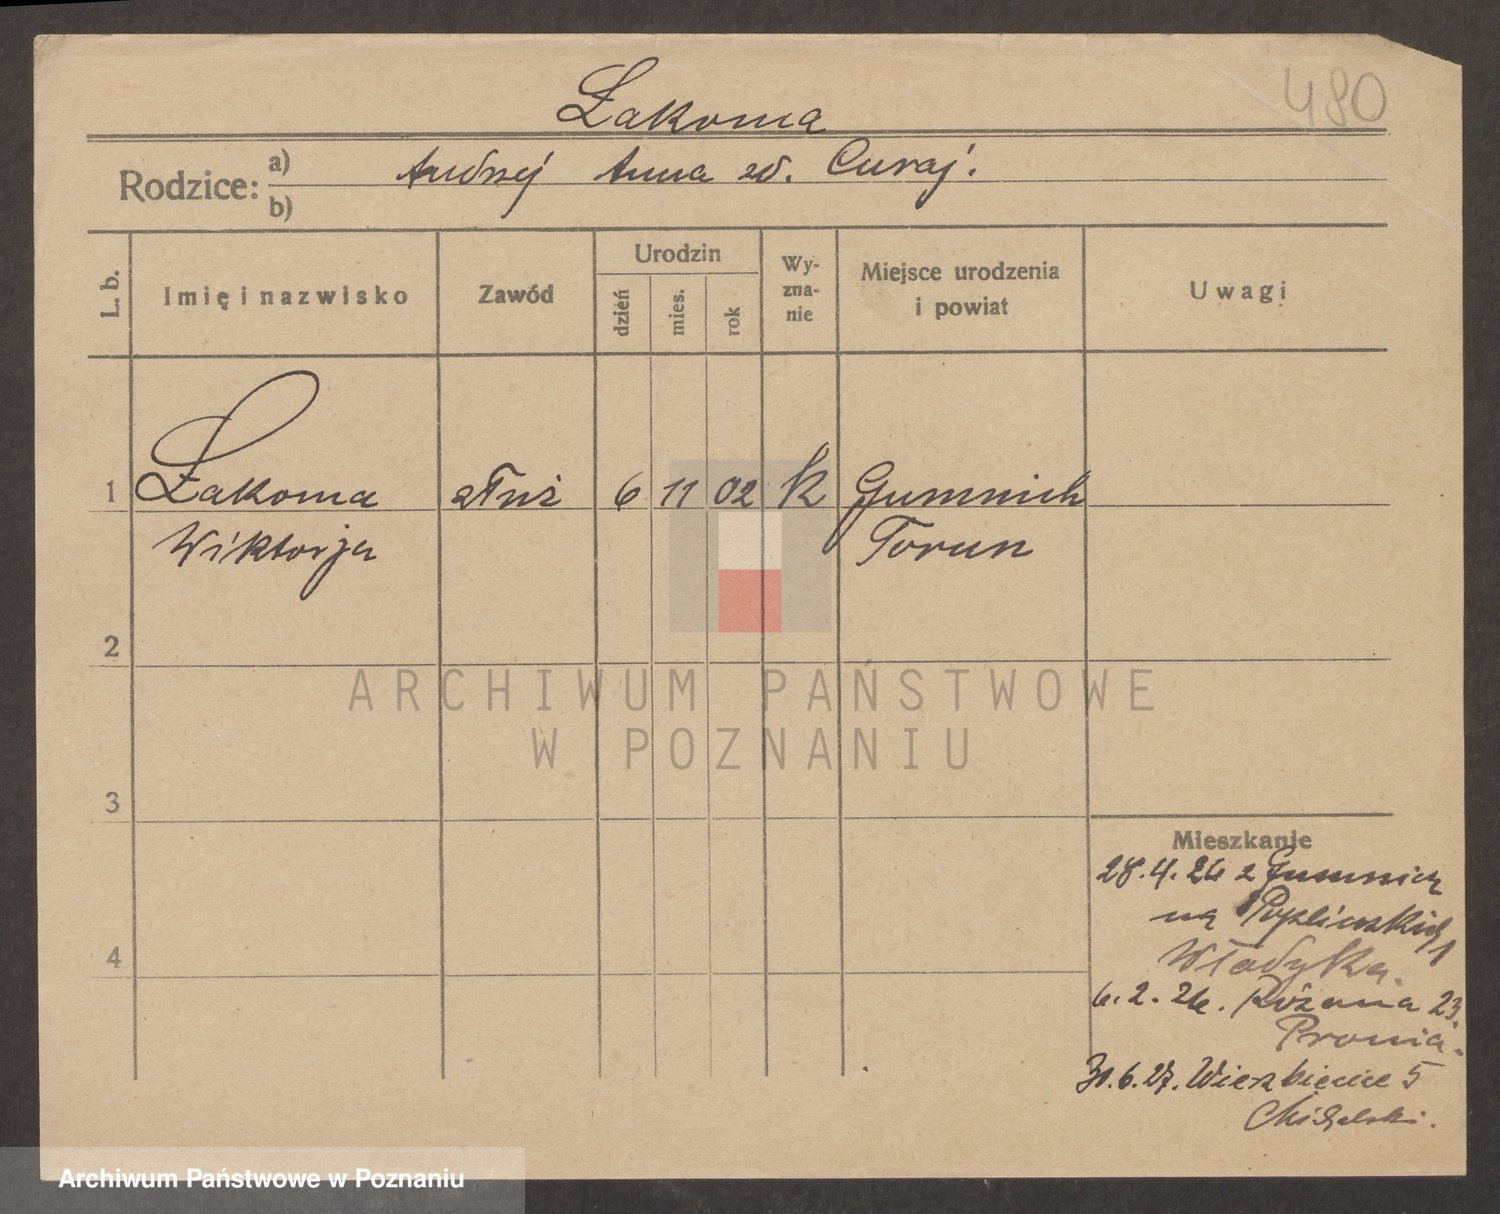 480
Łakoma
Rodzice: a) Andrzej Anna zd. Curaj.
b)
L. b.
Imię i nazwisko
Zawód
Urodzin
dzień
mies.
rok
Wy-
zna-
nie
Miejsce urodzenia
i powiat
Uwagi
1 Łakoma służ 6 11 02 k
Wiktorja Torun
2
3
4
Mieszkanie
28.4.26 z
na
Władyka.
6.2.26. Różana 23.
Pronia.
30.6.27. Wierzbięcice 5
ARCHIWUM PAŃSTWOWE
W POZNANIU
Archiwum Państwowe w Poznaniu